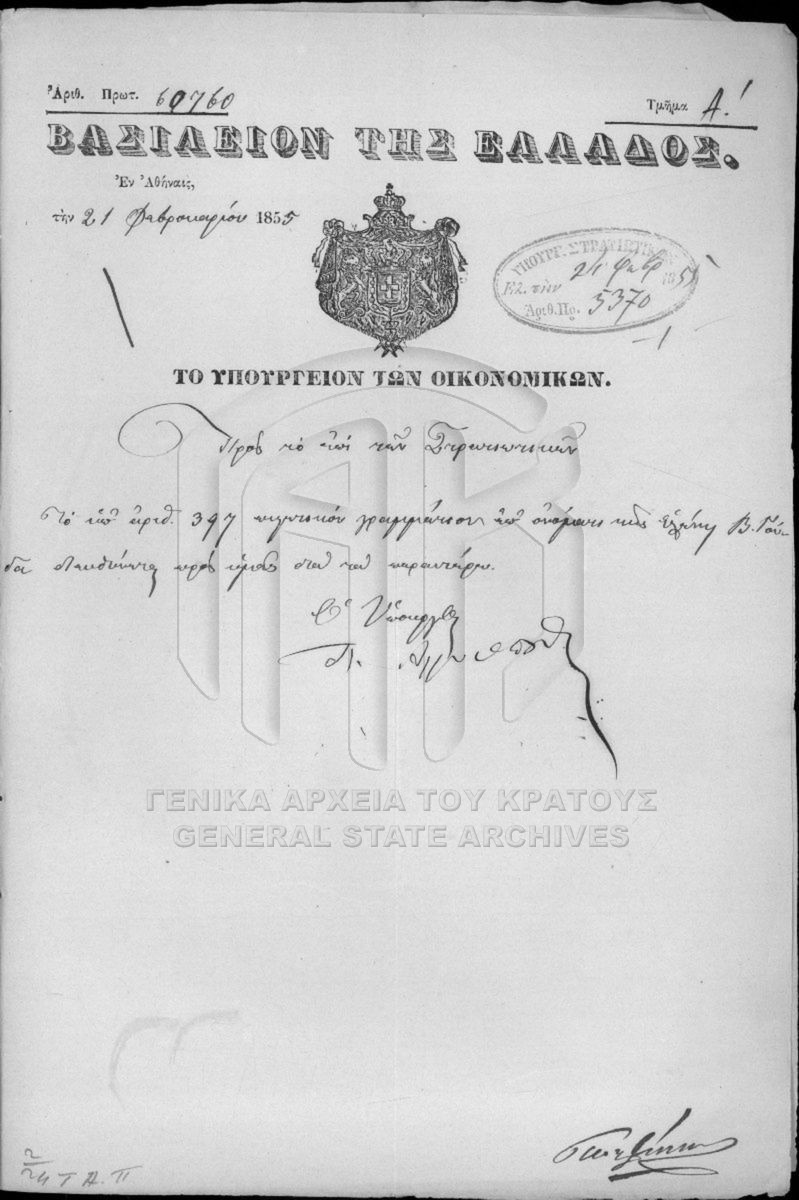 Ἀριθ. Πρωτ. 60760
Τμῆμα Α΄
ΒΑΣΙΛΕΙΟΝ ΤΗΣ ΕΛΛΑΔΟΣ.
Ἐν Ἀθήναις,
τὴν 21 Φεβρουαρίου 1855
ΥΠΟΥΡΓ. ΣΤΡΑΤΙΩΤΙΚΩΝ
Ἐλ. τὴν 24 φεβρ 1855
Ἀριθ. Πρ. 5370
ΤΟ ΥΠΟΥΡΓΕΙΟΝ ΤΩΝ ΟΙΚΟΝΟΜΙΚΩΝ.
Πρὸς τὸ ἐπὶ τῶν Στρατιωτικῶν
Τὸ ὑπ ἀριθ. 397 γραμμάτιον ἐπ ὀνόματι τῆς Ἑλένης Β. Γού-
δα πρὸς ὑμᾶς διὰ τοῦ παρόντος.
Ὁ Ὑπουργὸς
ΓΕΝΙΚΑ ΑΡΧΕΙΑ ΤΟΥ ΚΡΑΤΟΥΣ
GENERAL STATE ARCHIVES
2
24 Τ Α. Π